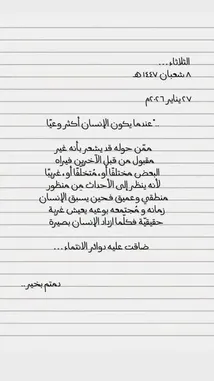 الثلاثاء...
٨ شعبان ١٤٤٧ هـ
٢٧ يناير ٢٠٢٦م
.."عندما يكون الإنسان أكثر وعيًا
ممّن حوله قد يشعر بأنه غير
مقبول من قبل الآخرين فيراه
البعض مختلفًا أو مُتخلفًا أو غريبًا
لأنه ينظر إلى الأحداث من منظور
منطقي وعميق فحين يسبق الإنسان
زمانه و مُجتمعه بوعيه يعيش غربة
حقيقيّة فكلّما ازداد الإنسان بصيرة
ضاقت عليه دوائر الانتماء...
دمتم بخير..